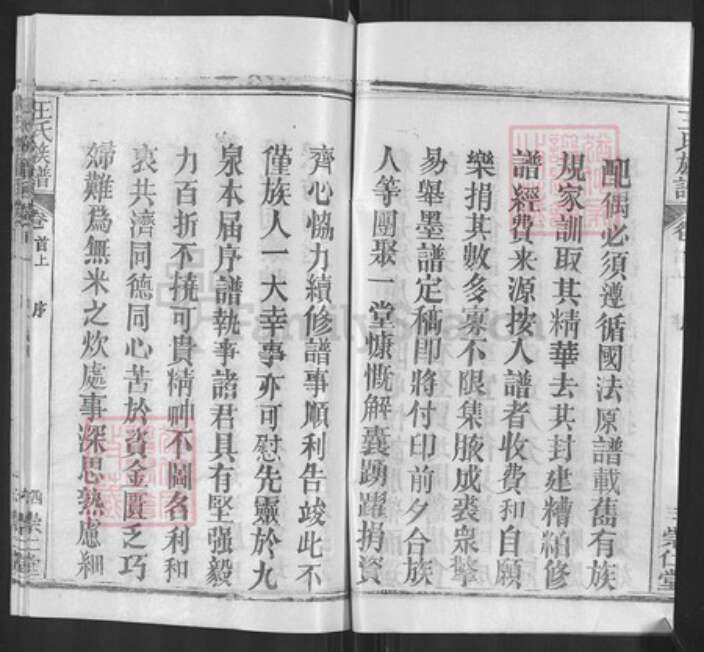 配偶必須遵循國法原譜載舊有族
規家訓取其精華去其封建糟粕修
譜經費來源按入譜者收費和自願
樂捐其數多寡不限集腋成裘衆擎
易舉墨譜定稿即將付印前夕合族
人等團聚一堂慷慨解囊踴躍捐資
齊心恊力續修譜事順利告竣此不
僅族人一大幸事亦可慰先靈於九
泉本届序譜執事諸君具有堅强毅
力百折不撓可貴精神不圖名利和
衷共濟同德同心苦於資金匱乏巧
婦難爲無米之炊處事深思熟慮細
王氏族譜
卷首上
序
四
崇仁堂
FamilySearch